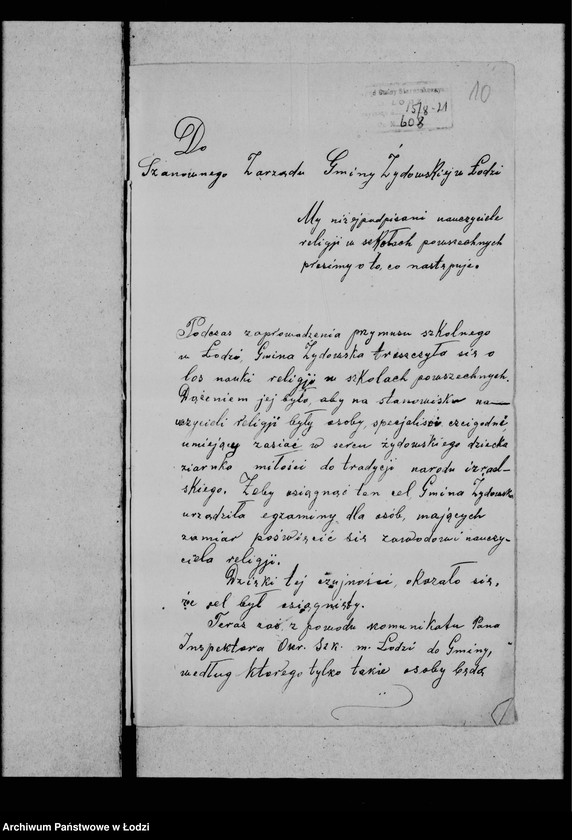 10
15/8-21
608
Do
Szanownego Zarządu Gminy Żydowskiej w Łodzi
My niżejpodpisani nauczyciele
religji w szkołach powszechnych
prosimy o to, co następuje.
Podczas zaprowadzenia przymusu szkolnego
w Łodzi, Gmina Żydowska troszczyła się o
los nauki religji w szkołach powszechnych.
Dążeniem jej było, aby na stanowisku na-
uczycieli religji były osoby, specjaliści czcigodni,
umiejący zasiać w sercu żydowskiego dziecka
ziarnko miłości do tradycji narodu izrael-
skiego. Żeby osiągnąć ten cel Gmina Żydowska
urządziła egzaminy dla osób, mających
zamiar poświęcić się zawodowi nauczy-
ciela religji.
Dzięki tej czujności, okazało się,
że cel był osiągnięty.
Teraz zaś z powodu komunikatu Pana
Inspektora Okr. Szk. m. Łodzi do Gminy,
według którego tylko takie osoby będą
Archiwum Państwowe w Łodzi